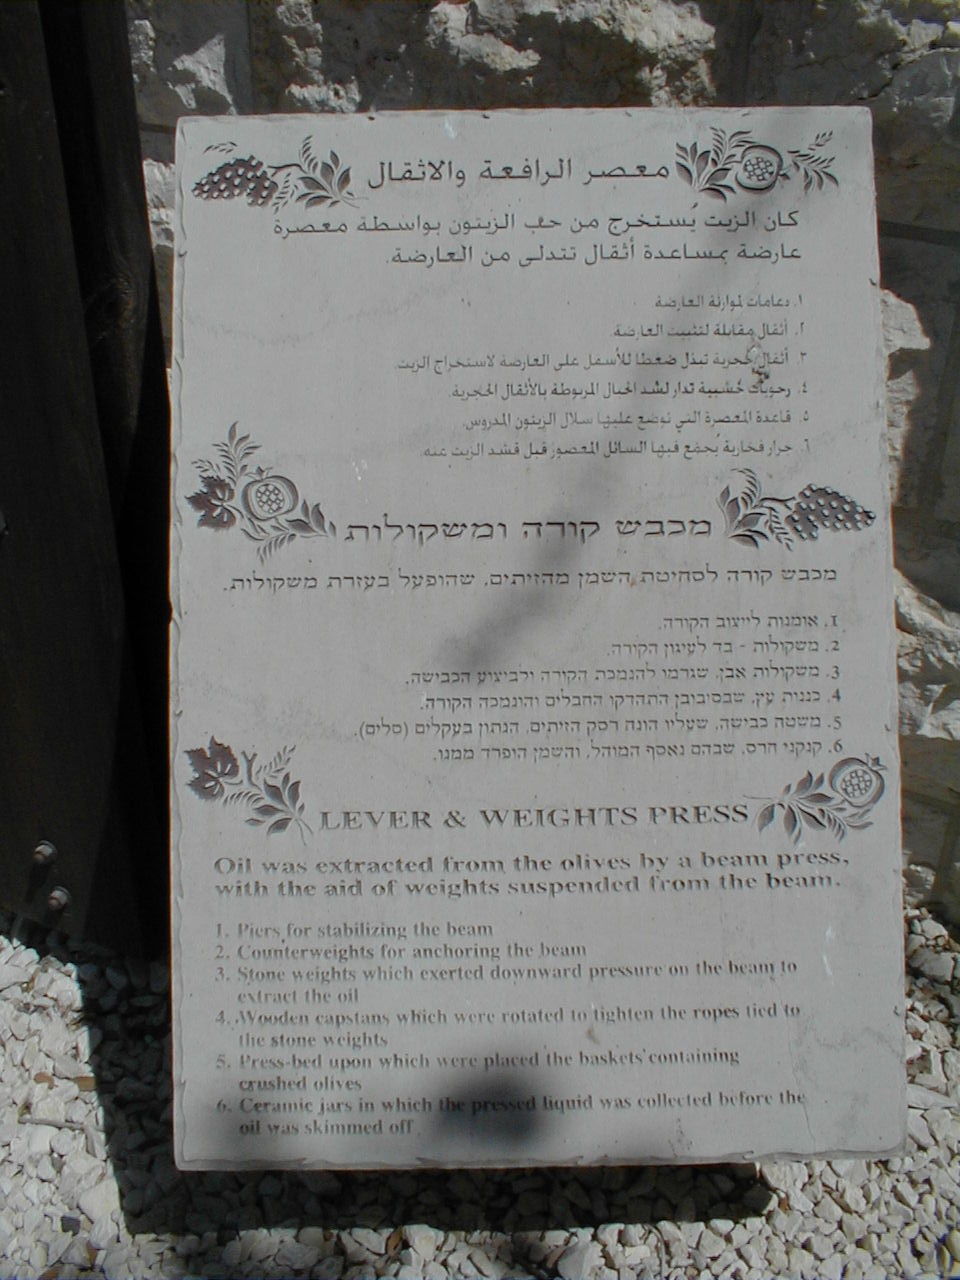 معصر الرافعة والاثقال
كان الزيت يُستخرج من حب الزيتون بواسطة معصرة
عارضة بمساعدة أثقال تتدلى من العارضة.
١. دعامات لموازنة العارضة
٢. أثقال مقابلة لتثبيت العارضة.
٣. أثقال حجرية تبذل ضغطا للأسفل على العارضة لاستخراج الزيت.
٤. رحويات خشبية تدار لشد الحبال المربوطة بالأثقال الحجرية.
٥. قاعدة المعصرة التي توضع عليها سلال الزيتون المدروس.
٦. جرار فخارية يجمع فيها السائل المعصور قبل قشد الزيت عنه.
מכבש קורה ומשקולות
מכבש קורה לסחיטת השמן מהזיתים, שהופעל בעזרת משקולות.
1. אומנות לייצוב הקורה.
2. משקולות - בד לעיגון הקורה.
3. משקולות אבן, שגרמו להנמכת הקורה ולביצוע הכבישה.
4. כננות עץ, שבסיבובן התהדקו החבלים והונמכה הקורה.
5. משטח כבישה, שעליו הונח רסק הזיתים, הנתון בעקלים (סלים).
6. קנקני חרס, שבהם נאסף המוהל, והשמן הופרד ממנו.
LEVER & WEIGHTS PRESS
Oil was extracted from the olives by a beam press,
with the aid of weights suspended from the beam.
1. Piers for stabilizing the beam
2. Counterweights for anchoring the beam
3. Stone weights which exerted downward pressure on the beam to
extract the oil
4. Wooden capstans which were rotated to tighten the ropes tied to
the stone weights
5. Press-bed upon which were placed the baskets containing
crushed olives
6. Ceramic jars in which the pressed liquid was collected before the
oil was skimmed off